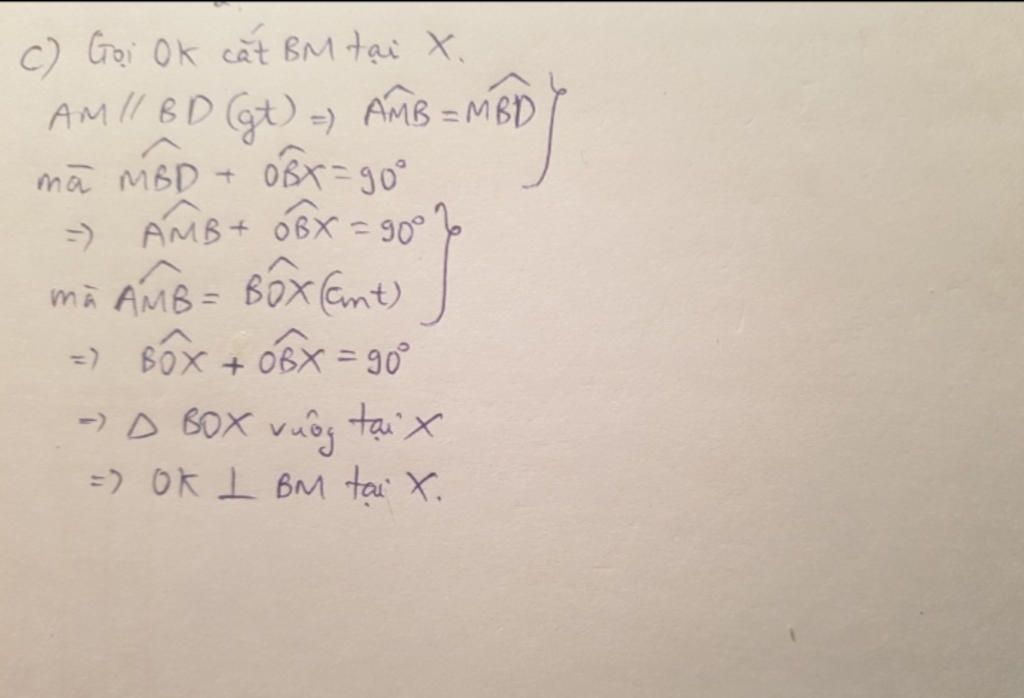 c) Gọi OK cắt BM tại X.
AM // BD (gt) => AMB = MBD
mà MBD + OBX = 90°
=> AMB + OBX = 90°
mà AMB = BOX (cmt)
=> BOX + OBX = 90°
=> Δ BOX vuông tại X
=> OK ⊥ BM tại X.